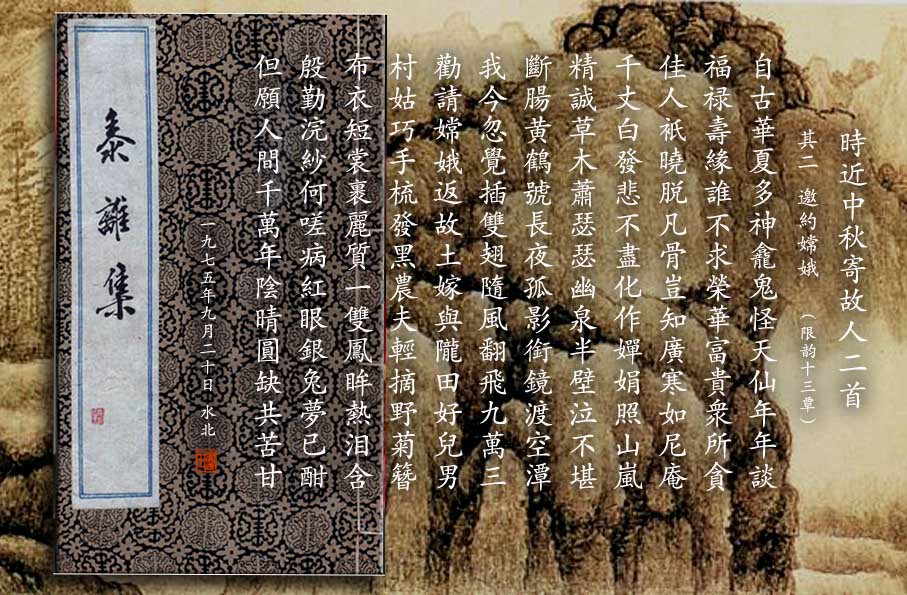 時近中秋寄故人二首
其二 邀約嫦娥 （限韵十三覃）
自古華夏多神龕鬼怪天仙年年談
福禄壽緣誰不求榮華富貴衆所貪
佳人衹曉脱凡骨豈知廣寒如尼庵
千丈白發悲不盡化作嬋娟照山嵐
精誠草木蕭瑟瑟幽泉半壁泣不堪
斷腸黄鶴號長夜孤影銜鏡渡空潭
我今忽覺插雙翅隨風翻飛九萬三
勸請嫦娥返故土嫁與隴田好兒男
村姑巧手梳發黑農夫輕摘野菊簪
布衣短裳裹麗質一雙鳳眸熱泪含
殷勤浣紗何嗟病紅眼銀兔夢已酣
但願人間千萬年陰晴圓缺共苦甘
一九七五年九月二十日 水北
離集